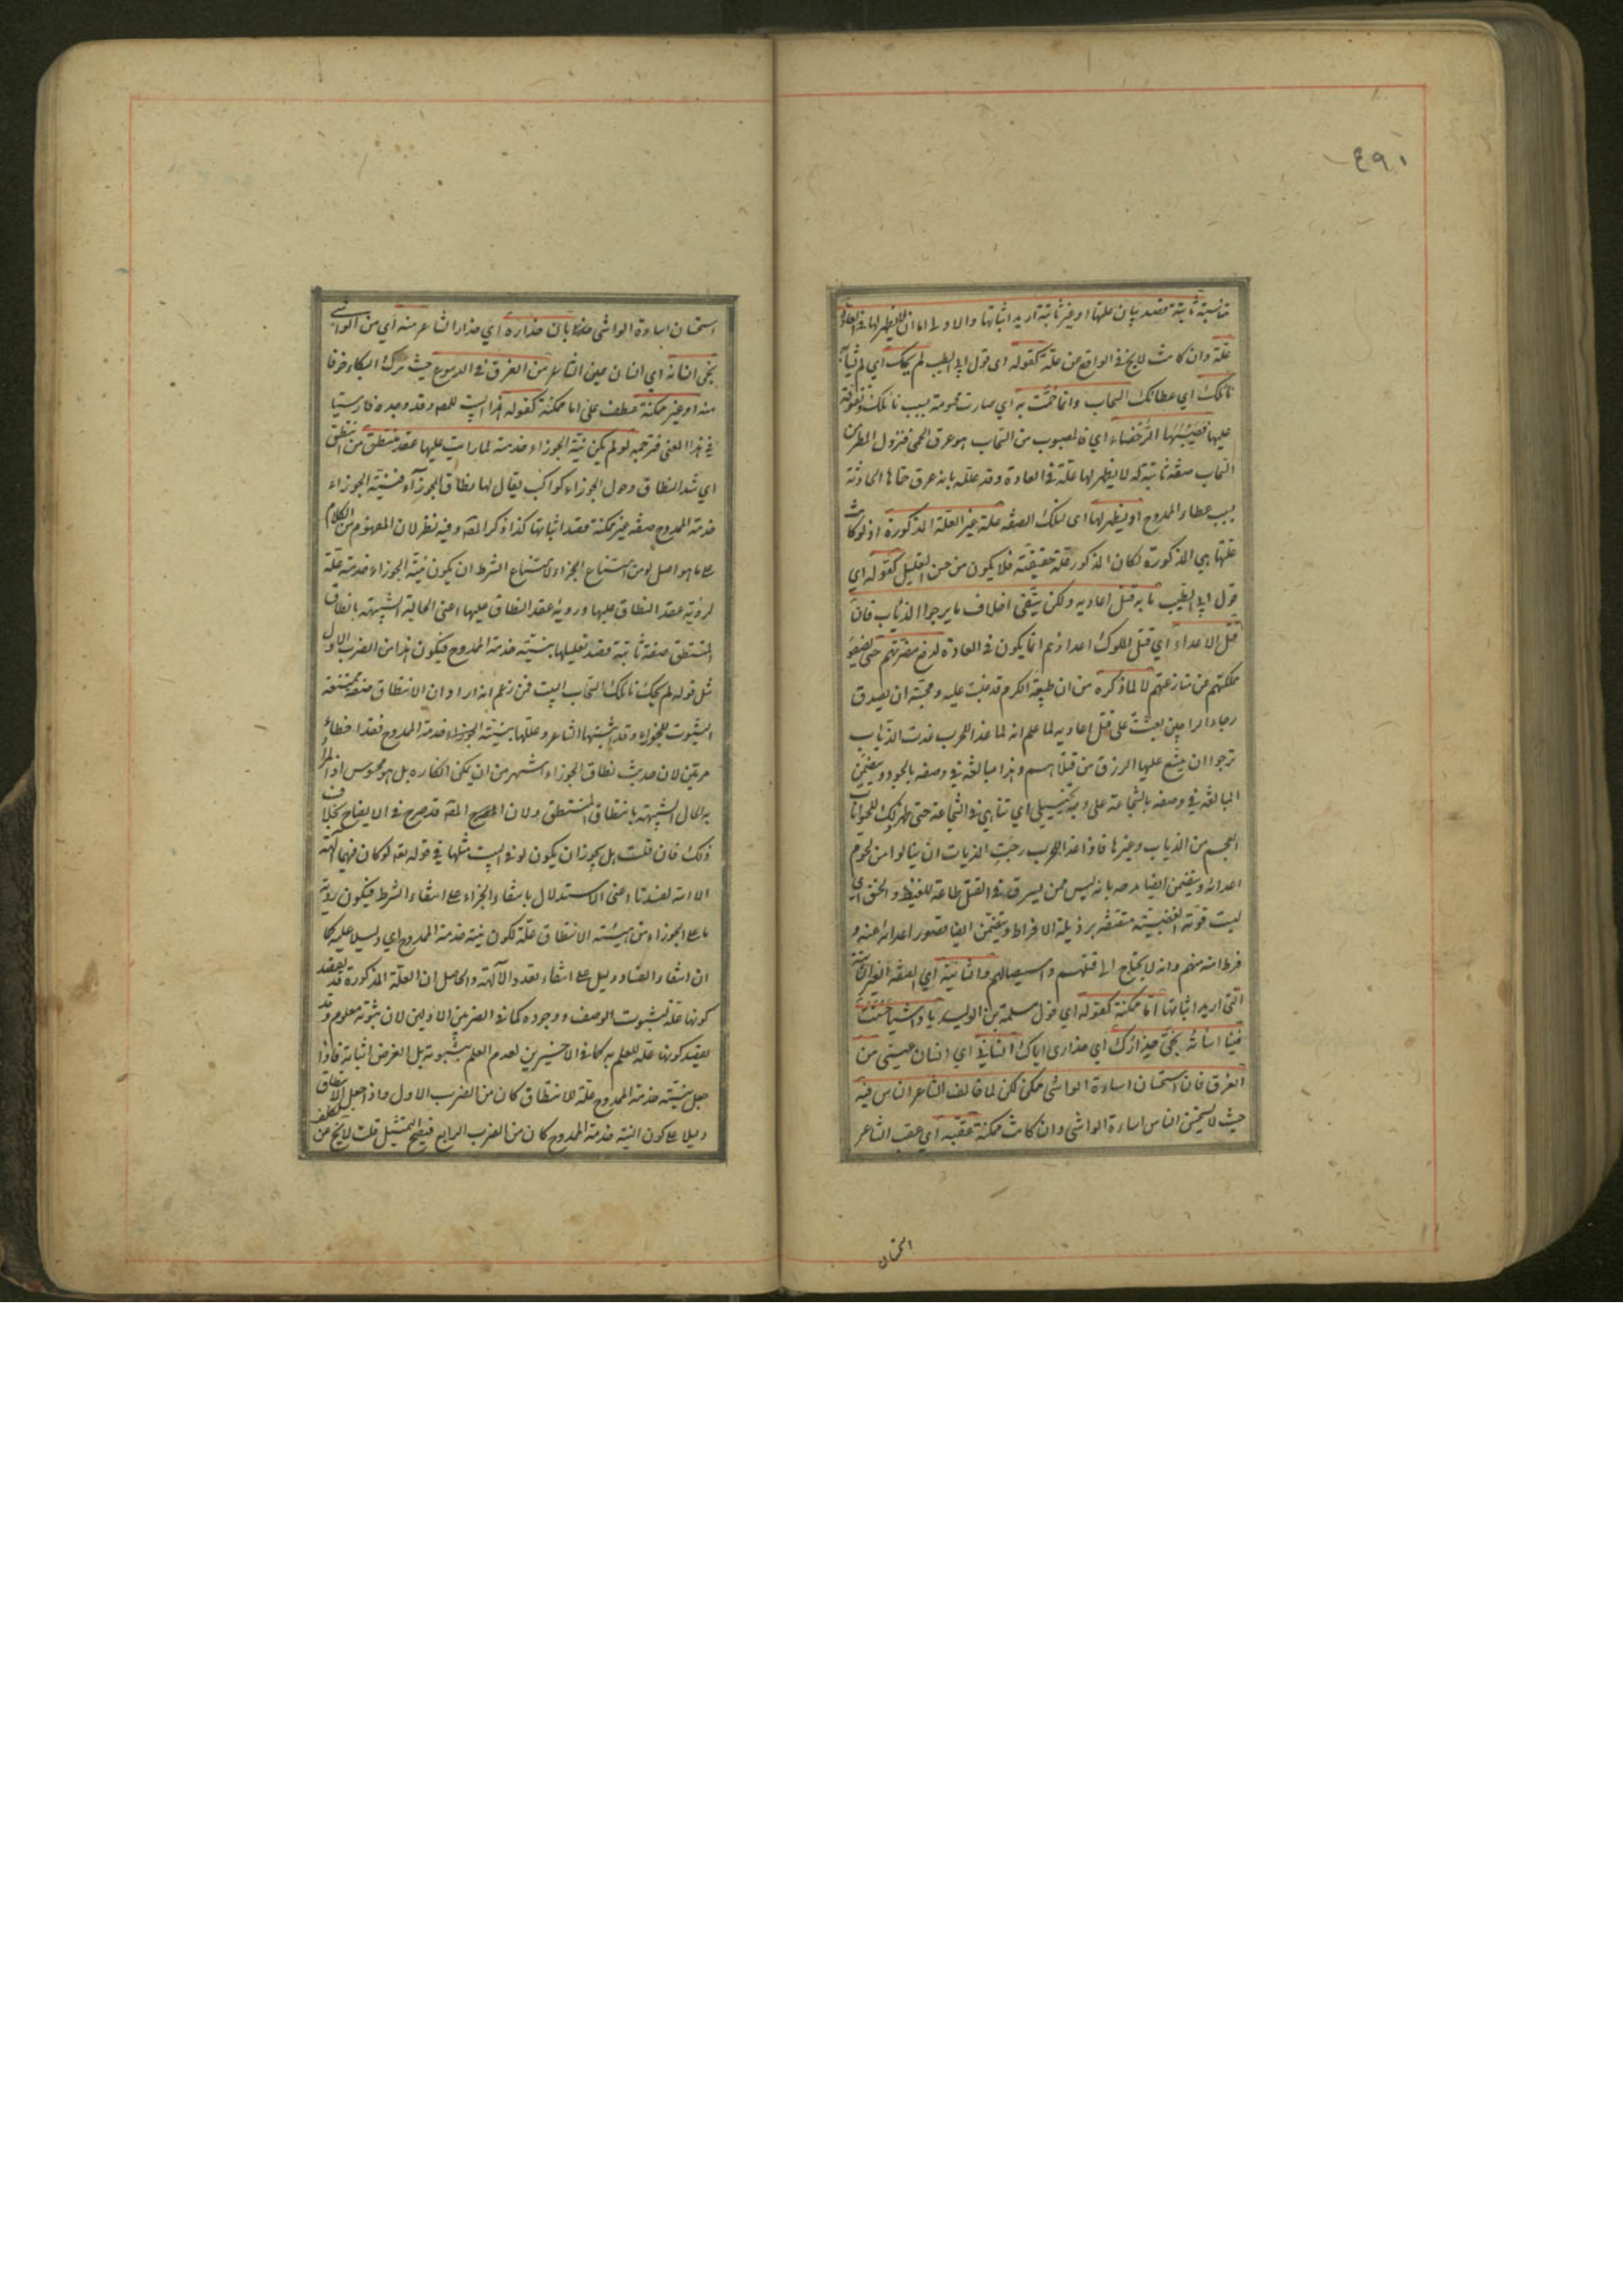 ٤٩٠
ثابتة قصد بيان علتها او غير ثابتة اريد اثباتها والاولى اما ان لا يظهر لها في العادة
علة وان كانت لا يخ في الواقع عن علة كقوله اى قول ابى الطيب لم يحك اي لم يشابه
نائلك اي عطائك السحاب وانما حمت به اي صارت محمومة بسبب نائلك وتفوقه
عليها فصبيبها الرحضاء اي فالمصبوب من السحاب هو عرق الحمى فنزول المطر من
السحاب صفة ثابتة له لا يظهر لها علة في العادة وقد علله بانه عرق حماها الحادثة
بسبب عطاء الممدوح او يظهر لها اى لتلك الصفة علة غير العلة المذكورة اذ لو كانت
علتها هي المذكورة لكان المذكور علة حقيقية فلا يكون من حسن التعليل كقوله اي
قول ابى الطيب ما به قتل اعاديه ولكن يتقى اخلاف ما يرجوا الذياب فان
قتل الاعداء اي قتل الملوك اعداءهم انما يكون في العادة لدفع مضرتهم حتى يصفو
مملكتهم عن منازعتهم لا لما ذكره من ان طبيعة الكرم قد غلبت عليه ومحبته ان يصدق
رجاء الراجين بعثت على قتل اعاديه لما علم انه لما غدا للحرب غدت الذياب
ترجوا ان يتسع عليها الرزق من قتلاهم وهذا مبالغة في وصفه بالجود ويتضمن
المبالغة في وصفه بالشجاعة على وجه تخييلي اي تناهى في الشجاعة حتى ظهر ذلك للحيوانات
العجم من الذياب وغيرها فاذا غدا للحرب رجت الذياب ان ينالوا من لحوم
اعدائه ويتضمن ايضا مدحه بانه ليس ممن يسرف في القتل طاعة للغيظ والحنق اي
ليست قوته الغضبية متصفة برذيلة الافراط ويتضمن ايضا قصور اعدائه عنه و
فرط امنه منهم وانه لا يحتاج الى قتلهم واستيصالهم والثانية اي الصفة الغير الثابتة
التي اريد اثباتها اما ممكنة كقوله اي قول مسلم بن الوليد يا واشيا حسنت
فينا اسائته نجى حذارك اي حذارى اياك انساني اي انسان عيني من
الغرق فان استحسان اساءة الواشى ممكن لكن لما خالف الشاعر الناس فيه
حيث لا يستحسن الناس اساءة الواشى وان كانت ممكنة عقبه اي عقب الشاعر
استحسان
استحسان اساءة الواشى بان حذاره اي حذار الشاعر منه اي من الواشى
نجى انسانه اي انسان عين الشاعر من الغرق في الدموع حيث ترك البكاء خوفا
منه او غير ممكنة عطف على اما ممكنة كقوله هذا البيت للمص وقد وجده فارسيا
في هذا المعنى فترجمه لو لم يكن نية الجوزاء خدمته لما رايت عليها عقد منتطق من انتطق
اي شد النطاق وحول الجوزاء كواكب يقال لها نطاق الجوزاء فنية الجوزاء
خدمة الممدوح صفة غير ممكنة قصد اثباتها كذا ذكر المص وفيه نظر لان المفهوم من الكلام
على ما هو اصل لو من امتناع الجزاء لامتناع الشرط ان يكون نية الجوزاء خدمته علة
لرؤية عقد النطاق عليها ورؤية عقد النطاق عليها اعنى الحالة الشبيهة بانطاق
المنتطق صفة ثابتة قصد تعليلها بنية خدمة الممدوح فيكون هذا من الضرب الاول
مثل قوله لم يحك نائلك السحاب البيت فمن زعم انه اراد ان الانتطاق صفة ممتنعة
الثبوت للجوزاء وقد اثبتها الشاعر وعللها بنية الجوزاء خدمة الممدوح فقد اخطاء
مرتين لان حديث نطاق الجوزاء اشهر من ان يمكن انكاره بل هو محسوس اذ المراد
به الحال الشبيهة بانتطاق المنتطق ولان المص قد صرح في الايضاح بخلاف
ذلك فان قلت هل يجوز ان يكون لو في البيت مثلها في قوله تعه لو كان فيهما آلهة
الا الله لفسدتا اعنى الاستدلال بانتفاء الجزاء على انتفاء الشرط فيكون رؤية
ما على الجوزاء من هيئته الانتطاق علة لكون نيته خدمة الممدوح اي دليلا عليه كما
ان انتفاء الفساد دليل على انتفاء تعدد الآلهة والحاصل ان العلة المذكورة قد يقصد
كونها علة لثبوت الوصف ووجوده كما في الضربين الاولين لان ثبوته معلوم وقد
يقصد كونها علة للعلم به كما في الاخيرين لعدم العلم بثبوته بل الغرض اثباته فاذا
جعل نيته خدمة الممدوح علة الانتطاق كان من الضرب الاول واذا جعل الانتطاق
دليلا على كون النية خدمة الممدوح كان من الضرب الرابع فيصح التمثيل قلت لا يخ عن تكلف